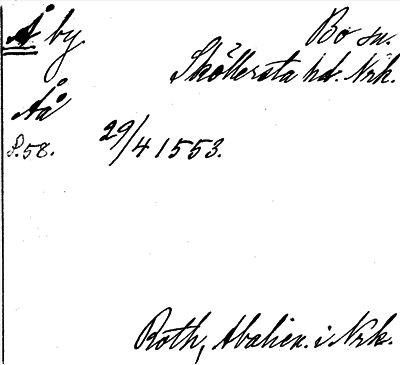 Å by Bo sn.
Sköllersta hd. Nrk.
Aå
S. 58. 29/4 1553.
Roth, Abalien. i Nrk.